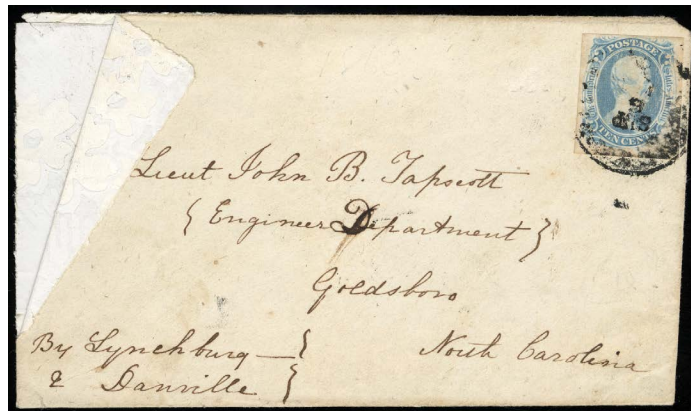 POSTAGE
TEN CENTS
Lieut John B. Tapscott
{ Engineer Department }
Goldsboro
North Carolina
By Lynchburg —
& Danville }